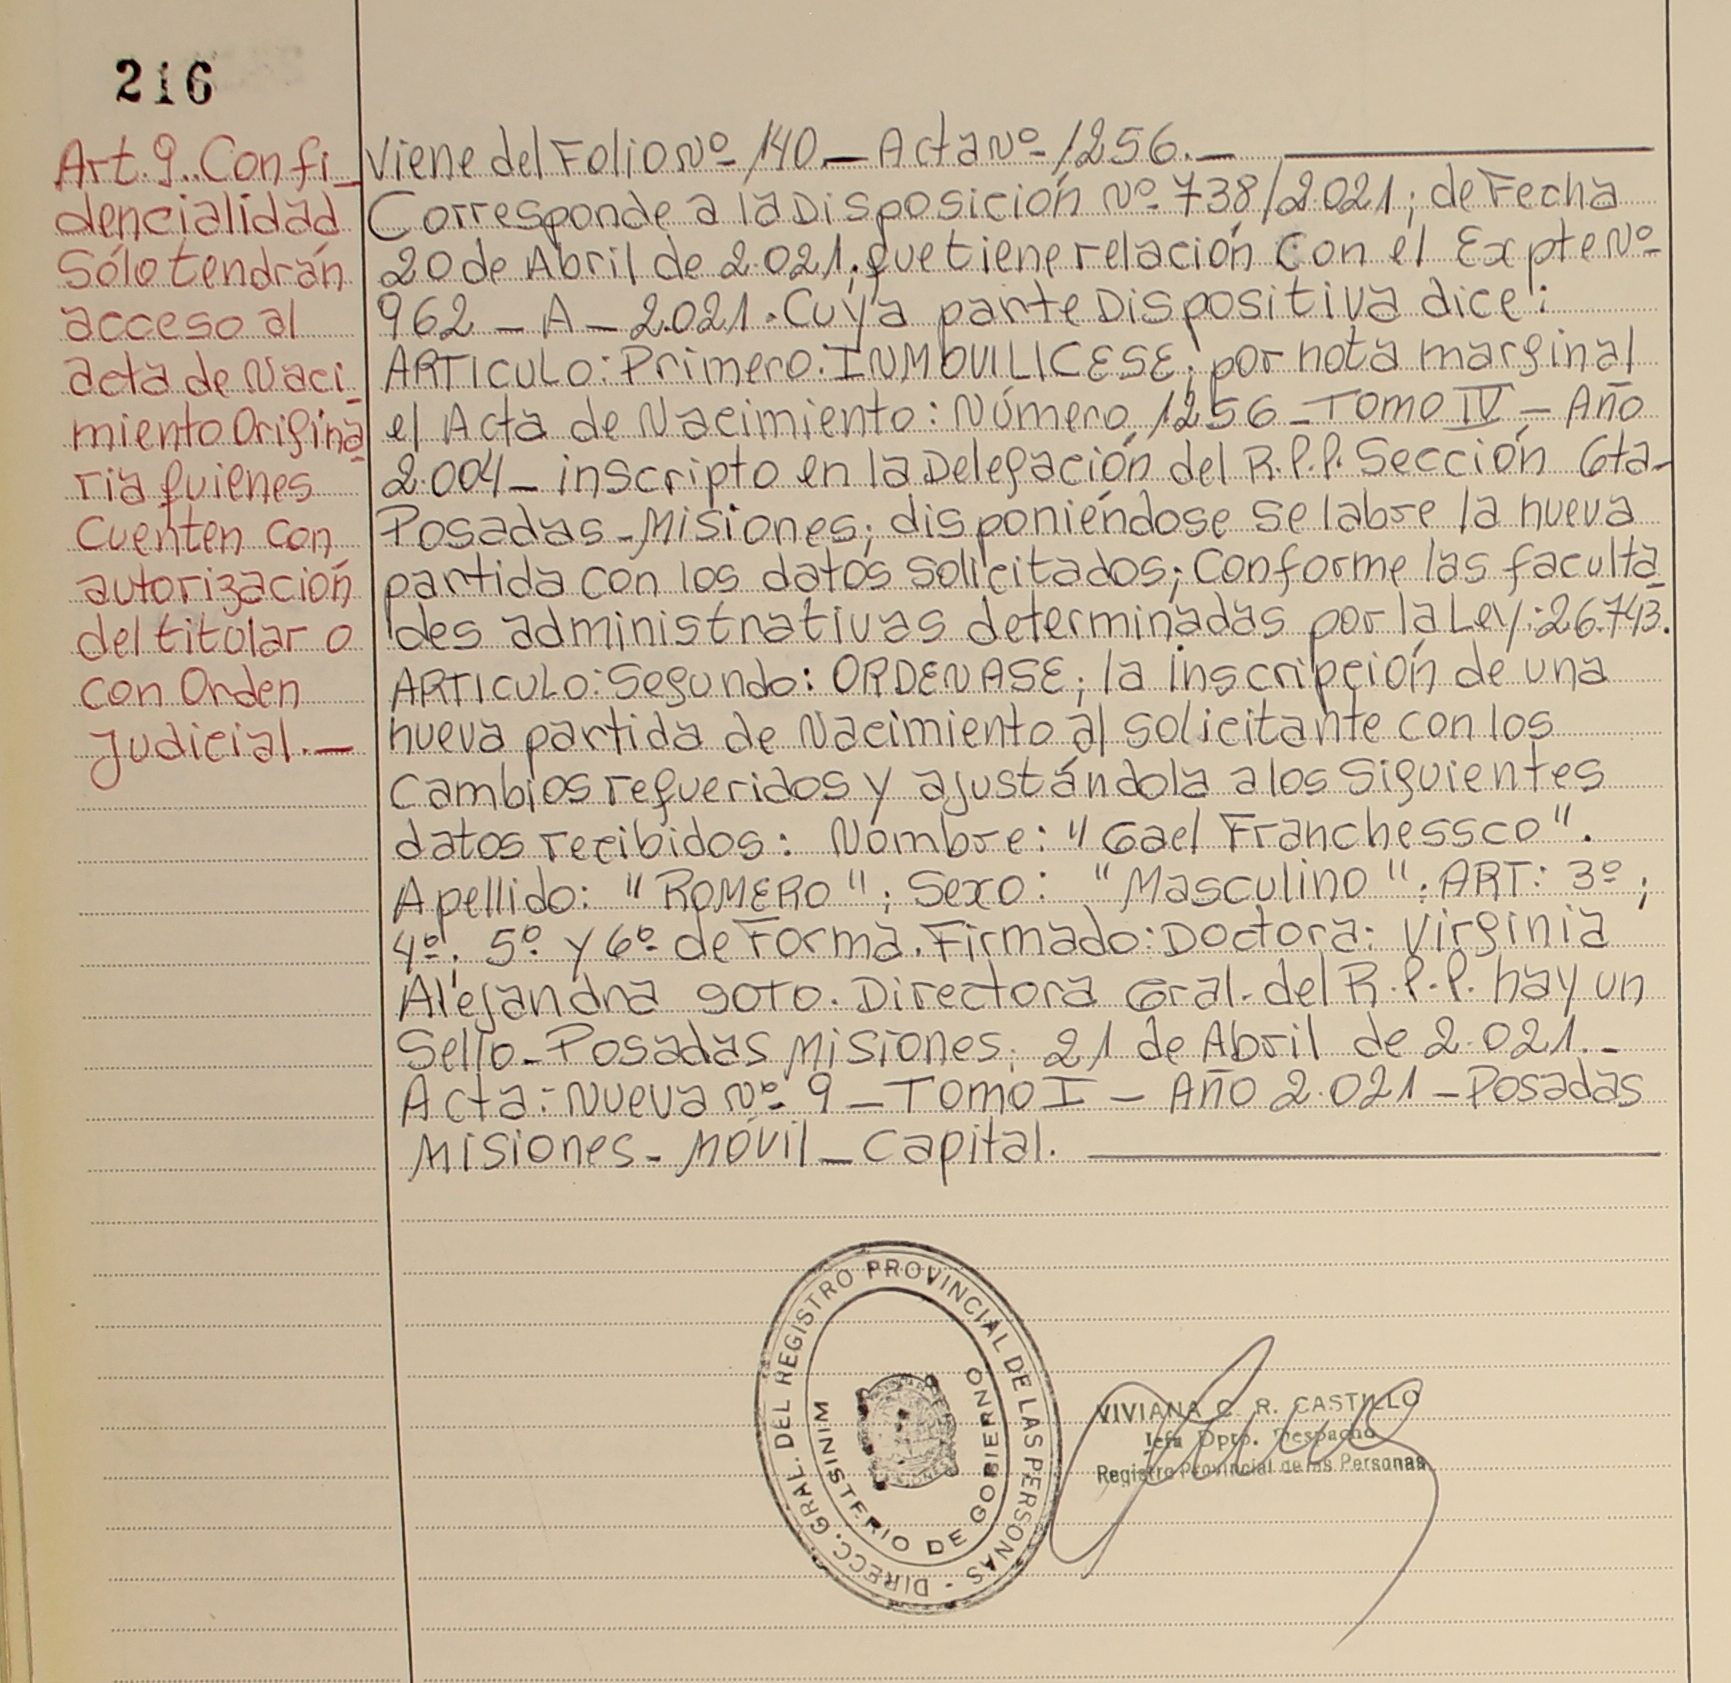 216
Art. 9.. Confi_
dencialidad
Sólo tendrán
acceso al
acta de Naci_
miento Origina
ria quienes
cuenten con
autorización
del titular o
con Orden
Judicial.—
Viene del Folio Nº 140.— Acta Nº 1256.—
Corresponde a la Disposición Nº 738/2.021; de Fecha
20 de Abril de 2.021. que tiene relación con el Expte Nº
962 _ A _ 2.021. Cuya parte Dispositiva dice:
ARTICULO: Primero. INMOUILICESE; por nota marginal
el Acta de Nacimiento: Número 1256 _ Tomo IV _ Año
2.004 _ inscripto en la Delegación del R.P.P. Sección 6ta_
Posadas _ Misiones; disponiéndose se labre la nueva
partida con los datos solicitados; Conforme las faculta_
des administrativas determinadas por la Ley: 26.743.
ARTICULO: Segundo: ORDENASE; la Inscripción de una
nueva partida de Nacimiento al solicitante con los
cambios requeridos y ajustándola a los siguientes
datos recibidos: Nombre: "Gael Franchessco".
Apellido: "ROMERO"; Sexo: "Masculino". ART: 3º;
4º; 5º y 6º de Forma. Firmado: Doctora: Virginia
Alejandra SOTO. Directora Gral. del R.P.P. hay un
Sello _ Posadas Misiones. 21 de Abril de 2.021._
Acta: Nueva Nº 9 _ Tomo I _ Año 2.021 _ Posadas
Misiones _ Móvil _ Capital.
DIRECC. GRAL. DEL REGISTRO PROVINCIAL DE LAS PERSONAS -
MINISTERIO DE GOBIERNO
VIVIANA C. R. CASTILLO
Jefa Dpto. Despacho
Registro Provincial de las Personas